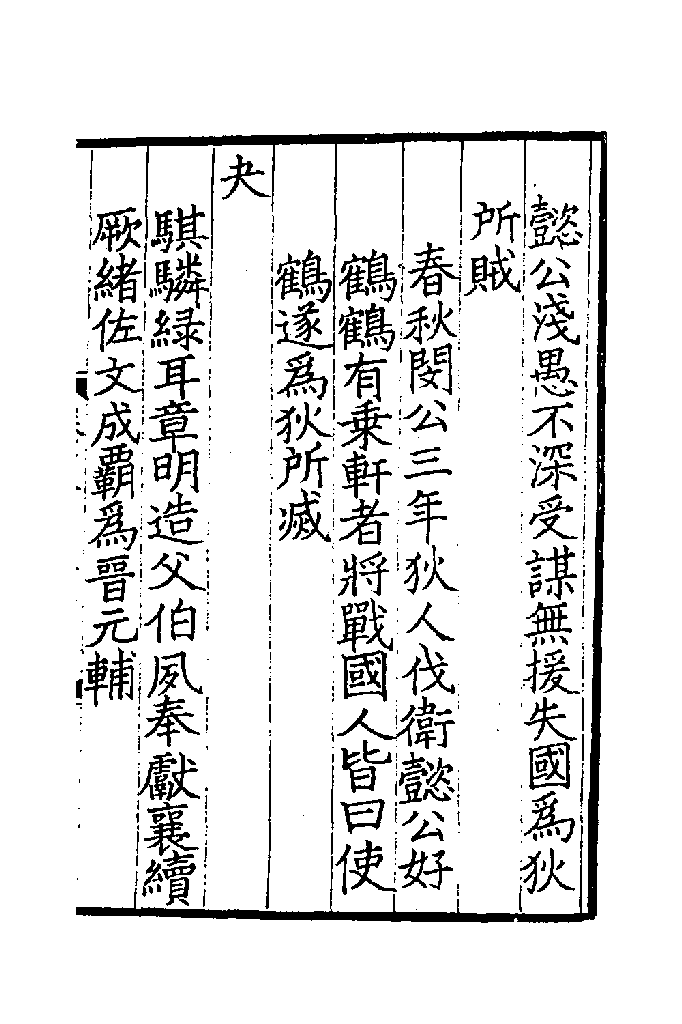 懿公淺愚不深受謀無援失國爲狄
所賊
春秋閔公三年狄人伐衛懿公好
鶴鶴有乗軒者將戰國人皆曰使
鶴遂爲狄所滅
夬
騏驎緑耳章明造父伯夙奉獻襄續
厥緒佐文成覇爲晋元輔